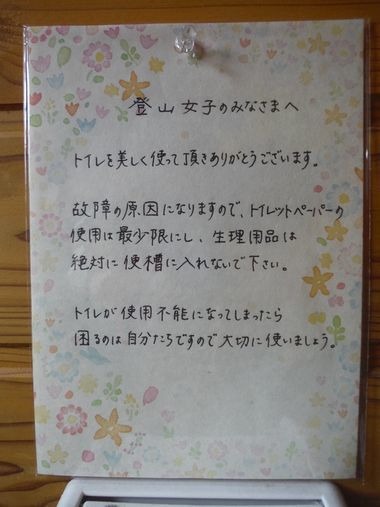 登山女子のみなさまへ
トイレを美しく使って頂きありがとうございます。
故障の原因になりますので、トイレットペーパーの
使用は最少限にし、生理用品は
絶対に便槽に入れないで下さい。
トイレが使用不能になってしまったら
困るのは自分たちですので大切に使いましょう。